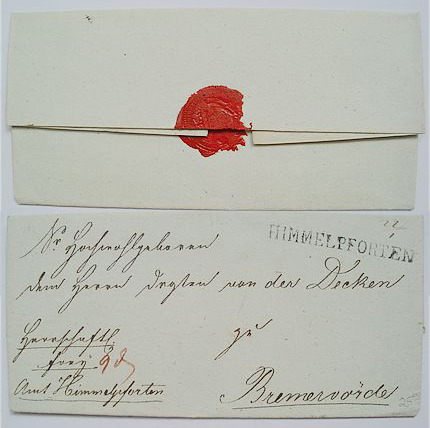 HIMMELPFORTEN
Sr Hochwohlgeboren
dem Herrn Drosten von der Decken
zu
Bremervörde
Herrschaftl
Amt Himmelpforten